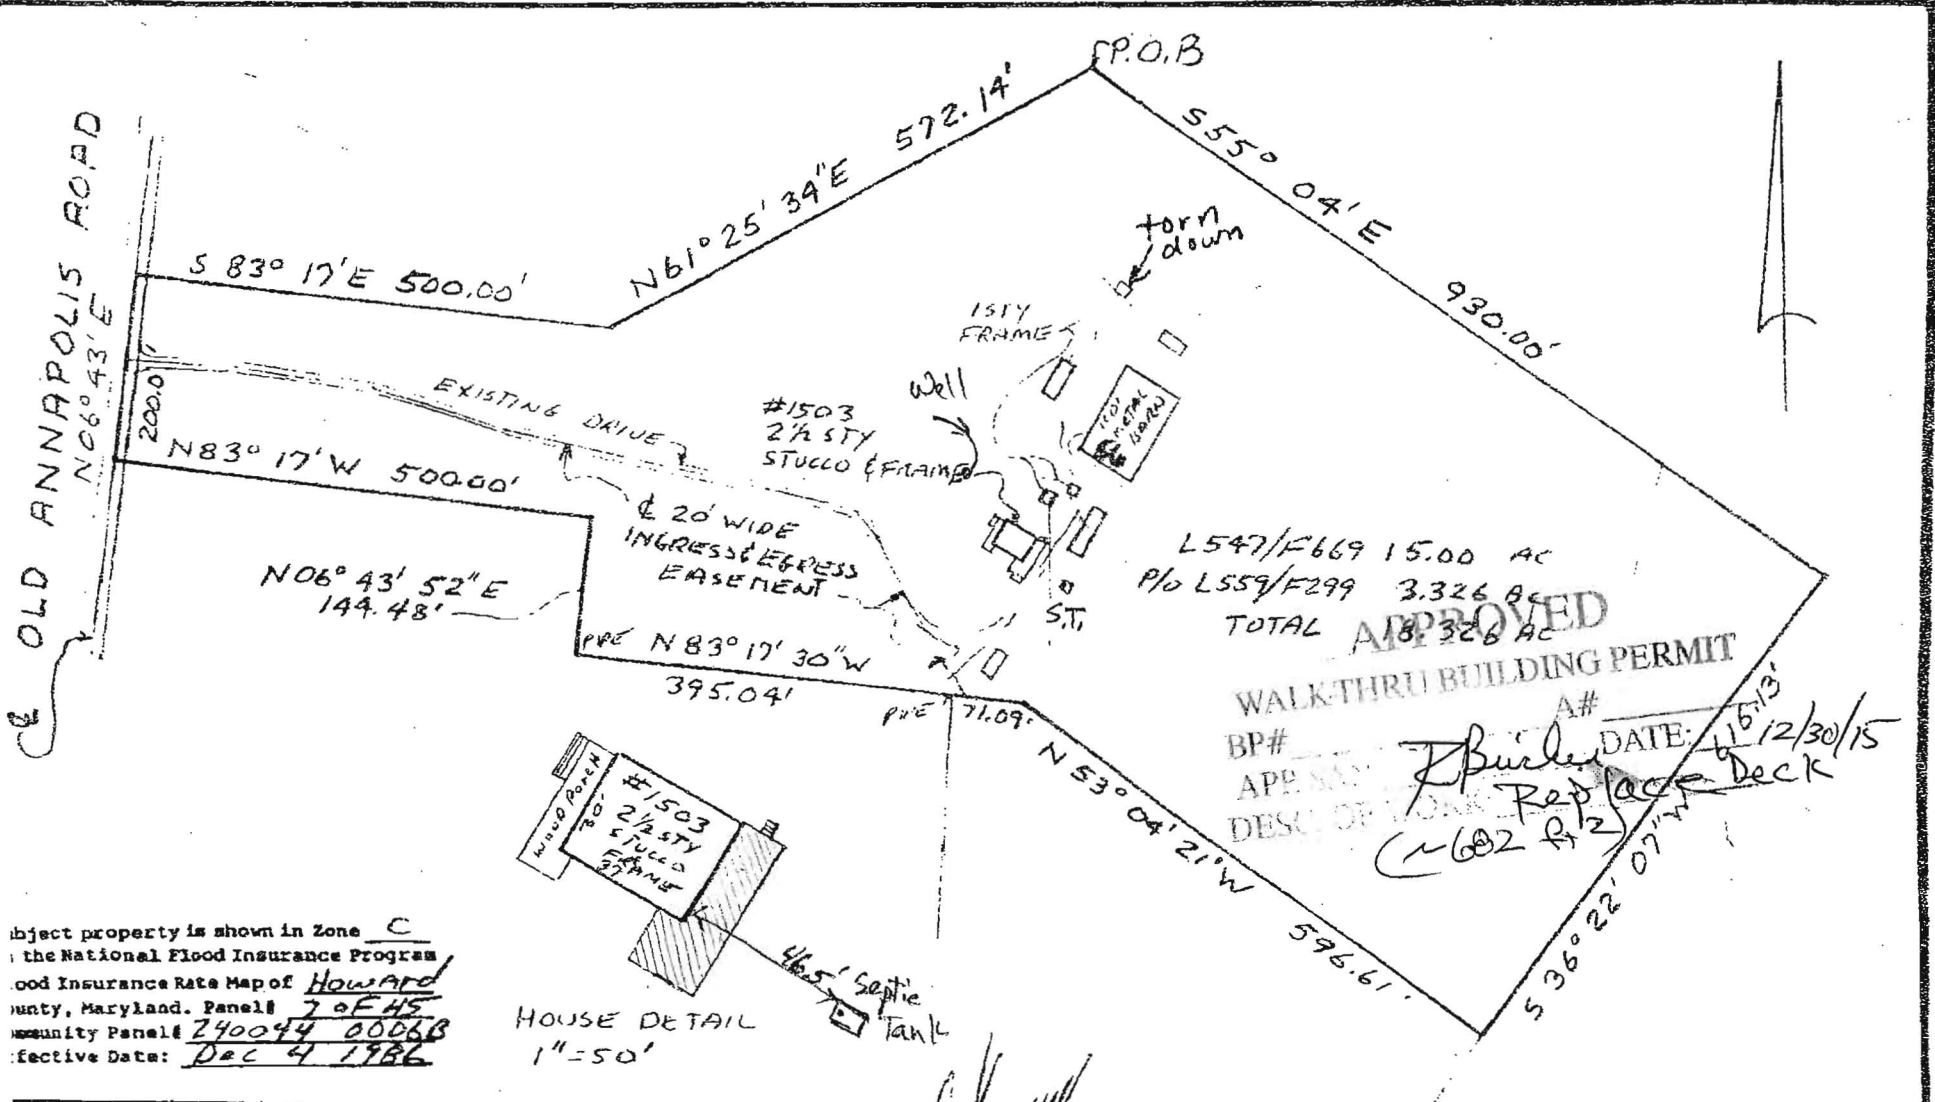 P.O.B
N61° 25' 34"E 572.14'
S55° 04' E 930.00'
OLD ANNAPOLIS ROAD
N06° 43' E
200.0
S 83° 17' E 500.00'
torn
down
1STY
FRAME
Well
EXISTING DRIVE
#1503
2½ STY
STUCCO & FRAME
METAL
BARN
N83° 17' W 500.00'
℄ 20' WIDE
INGRESS & EGRESS
EASEMENT
N06° 43' 52" E
144.48'
S.T.
L547/F669 15.00 AC
P/O L559/F299 3.326 AC
TOTAL 18.326 AC
APPROVED
WALK-THRU BUILDING PERMIT
BP# A#
DATE: 12/30/15
Replace Deck
(~602 ft^2)
PIPE N 83° 17' 30" W
395.04'
PIPE 71.09'
N 53° 04' 21" W 596.61'
S 36° 22' 07" W
℄
WOOD PORCH
30'
#1503
2½ STY
STUCCO
FRAME
37'
46.5' Septic
Tank
HOUSE DETAIL
1"=50'
bject property is shown in Zone C
the National Flood Insurance Program
ood Insurance Rate Map of Howard
unty, Maryland. Panel# 7 OF 45
munity Panel# 240044 0006B
fective Date: Dec 4 1986